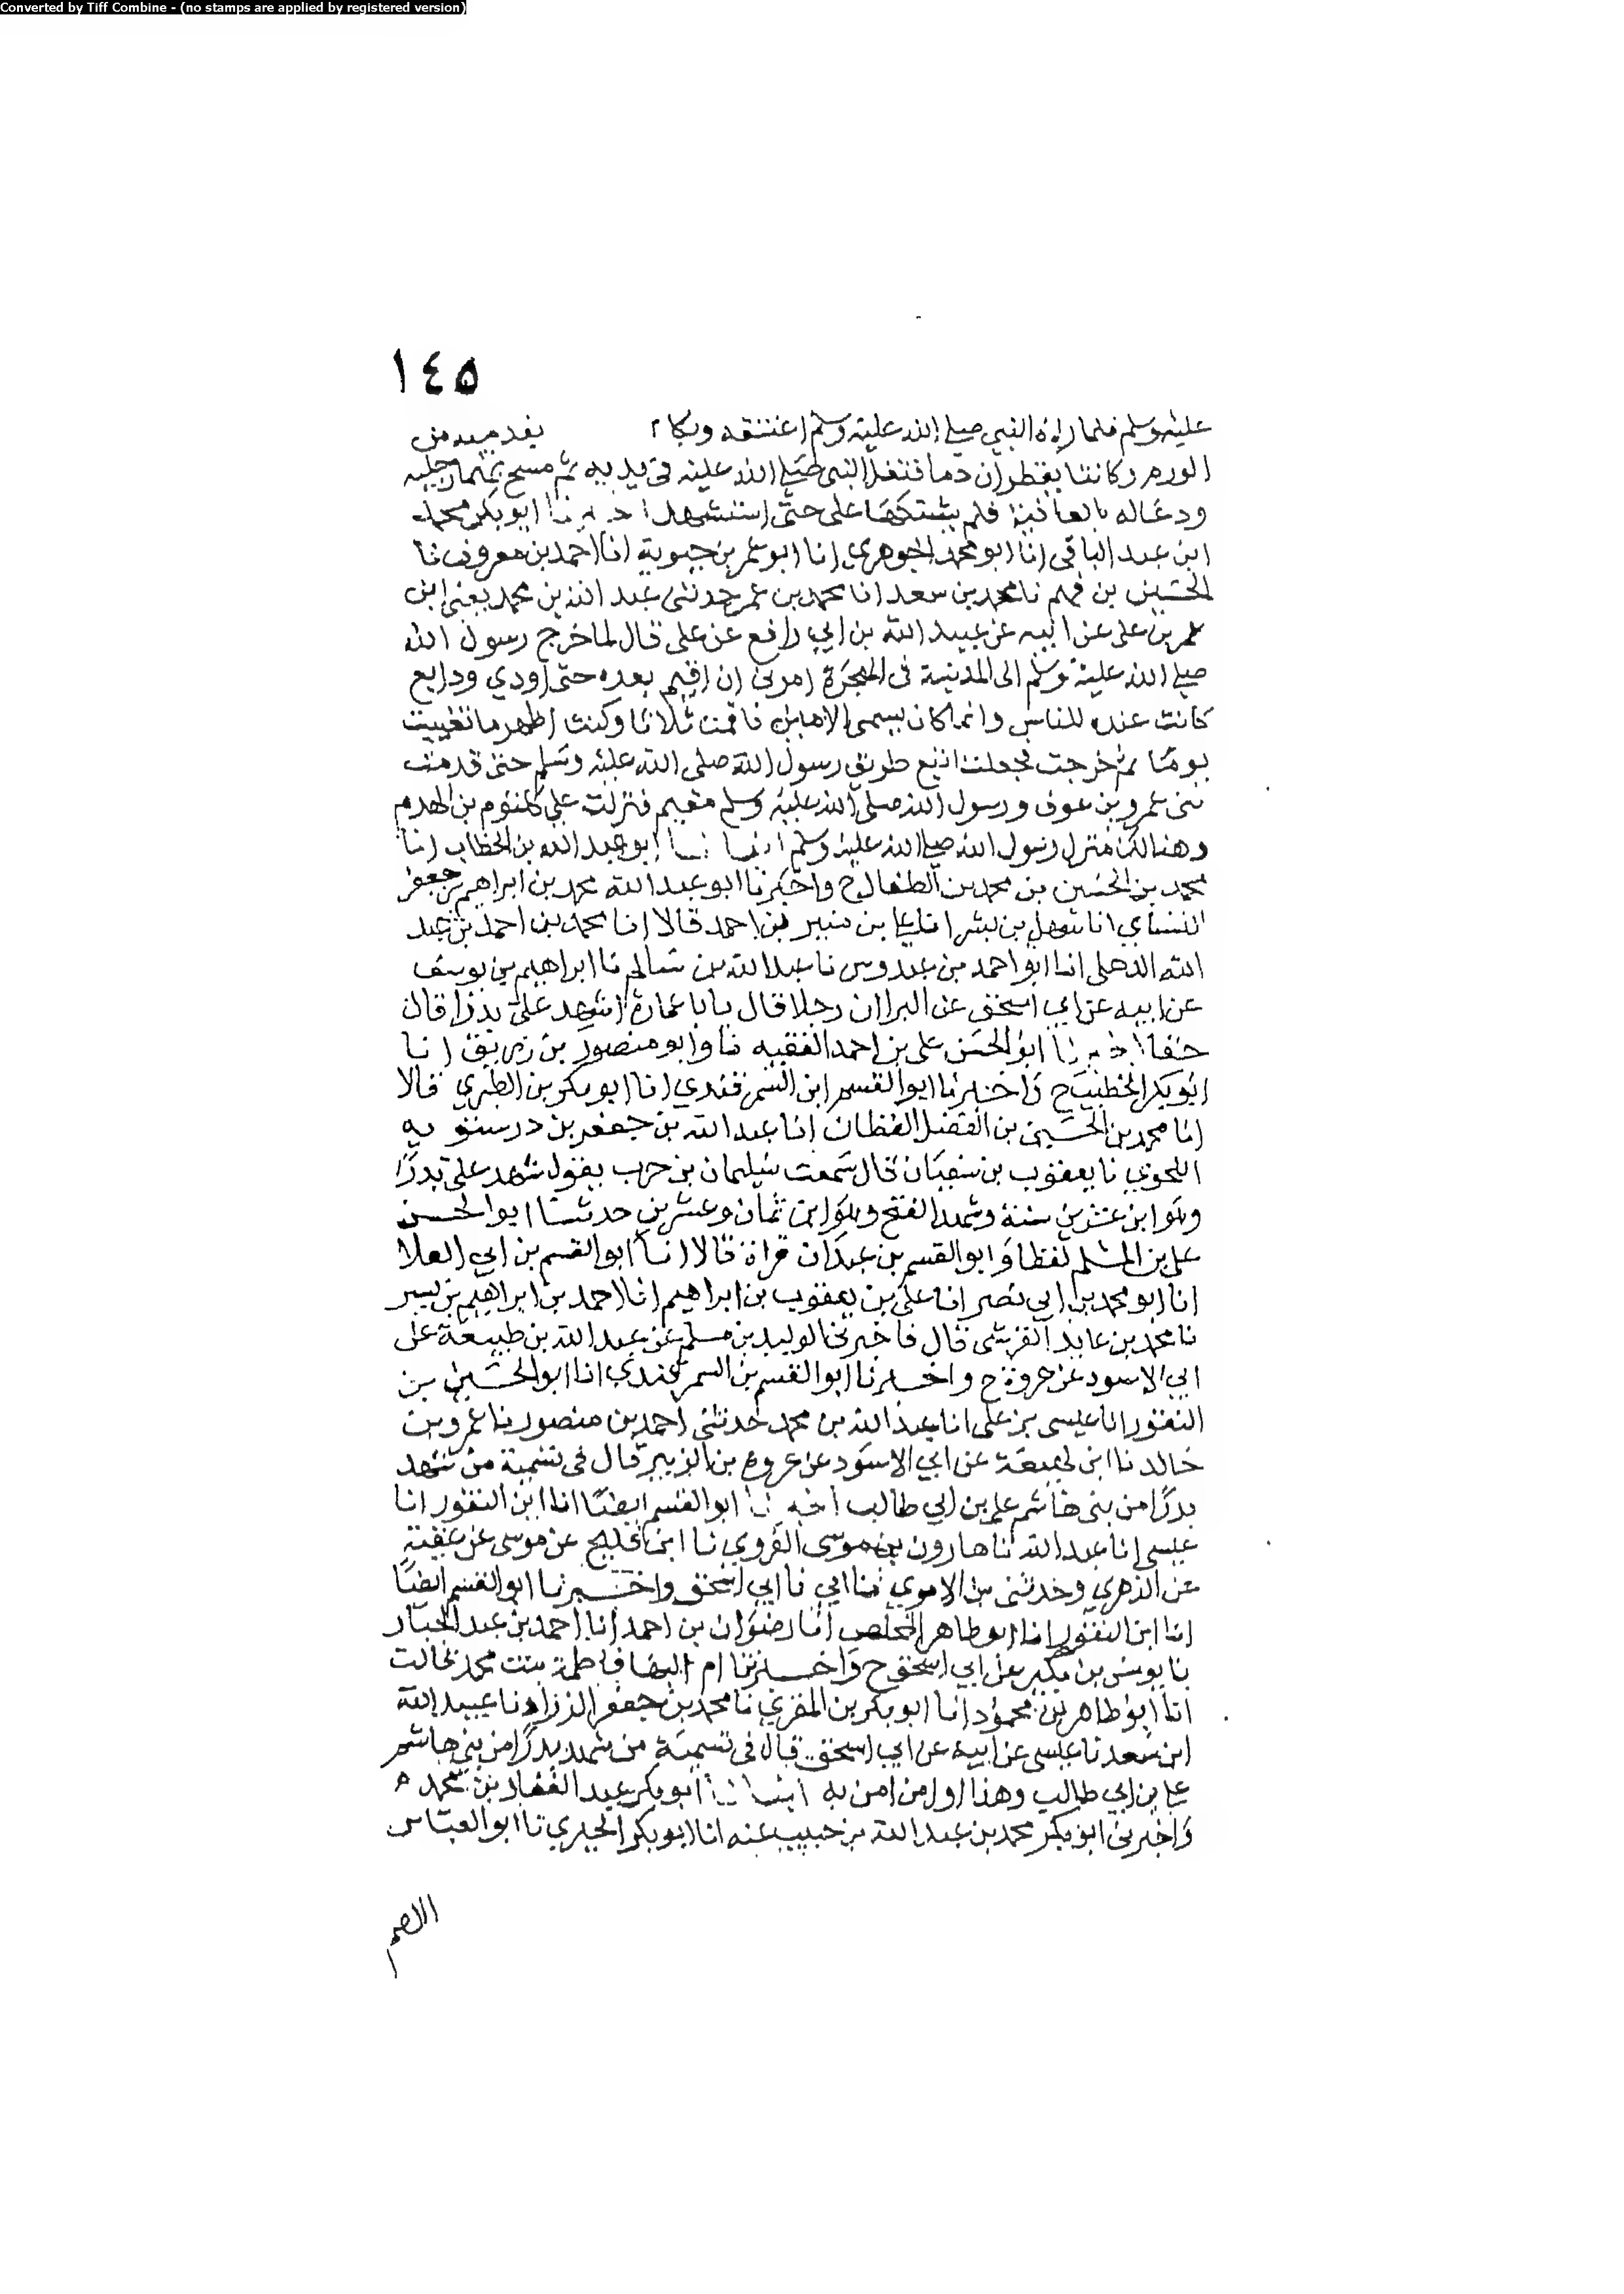 Converted by Tiff Combine - (no stamps are applied by registered version)
١٤٥
عليه وسلم فلما راه النبي صلى الله عليه وسلم اعتنقه وبكا بقدميه من
الورم وكانتا يقطران دما فتفل النبي صلى الله عليه في يديه ثم مسح بهما رجليه
ودعا له بالعافية فلم يشتكها على حتى استشهد اخبرنا ابو بكر محمد
ابن عبد الباقي انا ابو محمد الجوهري انا ابو عمر بن حيوية انا احمد بن معروف نا
الحسين بن فهم نا محمد بن سعد انا محمد بن عمر حدثني عبد الله بن محمد يعني ابن
عمر بن على عن ابيه عن عبيد الله بن ابي رافع عن على قال لما خرج رسول الله
صلى الله عليه وسلم الى المدينة في الهجرة امرني ان اقيم بعده حتى اودي ودايع
كانت عنده للناس وانما كان يسمى الامين فاقمت ثلاثا وكنت اظهر ما تغيبت
يوما ثم خرجت فجعلت اتبع طريق رسول الله صلى الله عليه وسلم حتى قدمت
بني عمرو بن عوف ورسول الله صلى الله عليه وسلم مقيم فنزلت على كلثوم بن الهدم
وهنالك منزل رسول الله صلى الله عليه وسلم انبانا ابو عبد الله بن الخطاب انا
محمد بن الحسين بن محمد بن الطفال ح واخبرنا ابو عبد الله محمد بن ابراهيم بن جعفر
النسائي انا سهل بن بشر انا علي بن منير بن احمد قالا انا محمد بن احمد بن عبد
الله الذهلى انا ابو احمد بن عبدوس نا عبد الله بن سالم نا ابراهيم بن يوسف
عن ابيه عن ابي اسحق عن البرا ان رجلا قال يا با عمارة اشهد على بدرا قال
حقا اخبرنا ابو الحسن على بن احمد الفقيه نا وابو منصور بن زريق انا
ابو بكر الخطيب ح واخبرنا ابو القسم ابن السمرقندي انا ابو بكر بن الطبري قالا
انا محمد بن الحسين بن الفضل القطان انا عبد الله بن جعفر بن درستويه
النحوي نا يعقوب بن سفيان قال سمعت سليمان بن حرب يقول شهد على بدرا
وهو ابن عشرين سنة وشهد الفتح وهو ابن ثمان وعشرين حدثنا ابو الحسن
على بن المسلم لفظا وابو القسم بن عبدان قراة قالا انا ابو القسم بن ابي العلا
انا ابو محمد بن ابي نصر انا على بن يعقوب بن ابراهيم انا احمد بن ابراهيم بن بسر
نا محمد بن عايد القرشى قال فاخبرني الوليد بن مسلم عن عبد الله بن لهيعة عن
ابي الاسود عن عروة ح واخبرنا ابو القسم بن السمرقندي انا ابو الحسين بن
النقور انا عيسى بن على انا عبد الله بن محمد حدثني احمد بن منصور نا عمرو بن
خالد نا ابن لهيعة عن ابي الاسود عن عروة بن الزبير قال في تسمية من شهد
بدرا من بني هاشم على بن ابي طالب اخبرنا ابو القسم ايضا انا ابن النقور انا
عيسى انا عبد الله نا هارون بن موسى الفروي نا ابن فليح عن موسى عن عقبة
عن الزهري وحدثني بن الاموي نا ابي نا ابي اسحق واخبرنا ابو القسم ايضا
انا ابن النقور انا ابو طاهر المخلص انا رضوان بن احمد انا احمد بن عبد الجبار
نا يونس بن بكير عن ابي اسحق ح واخبرتنا ام البها فاطمة بنت محمد قالت
انا ابو طاهر بن محمود انا ابو بكر بن المقري نا محمد بن جعفر الزراد نا عبيد الله
ابن سعد نا عيسى عن ابيه عن ابي اسحق قال في تسمية من شهد بدرا من بني هاشم
علي بن ابي طالب وهذا اول من امن به انبانا ابو بكر عبد الغفار بن محمد
واخبرني ابو بكر محمد بن عبد الله بن حبيب عنه انا ابو بكر الحيري نا ابو العباس
الاصم